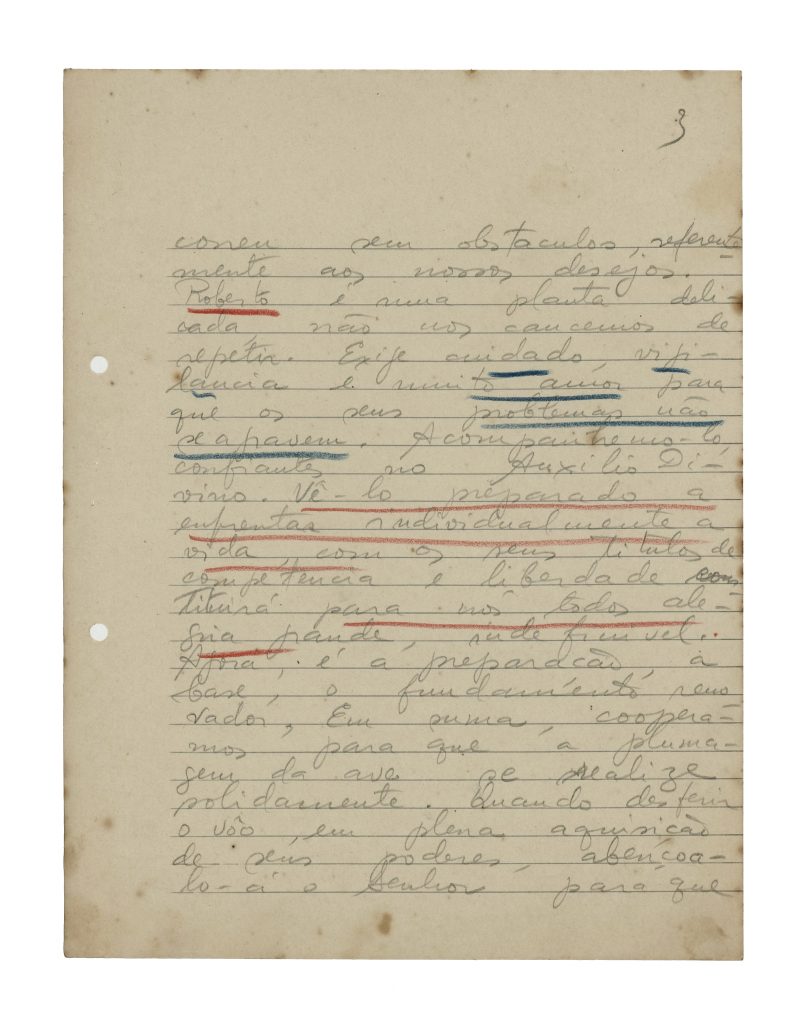 3
correu sem obstaculos, referente
mente aos nossos desejos.
Roberto é uma planta deli-
cada, não nos cancemos de
repetir. Exije cuidado, viji-
lancia e muito amôr para
que os seus problemas não
se agravem. Acompanhemo-lo,
confiantes no Auxilio Di-
vino. Vê-lo preparado a
enfrentar individualmente a
vida, com os seus titulos de
competência e liberdade cons
tituirá para nós todos ale-
gria grande, indefinivel.
Agora, é a preparação, a
base, o fundamento reno
vador. Em suma, coopera-
mos para que a pluma-
gem da ave se realize
solidamente. Quando desferir
o vôo, em plena aquisição
de seus poderes, abençoa-
lo-á o Senhor para que